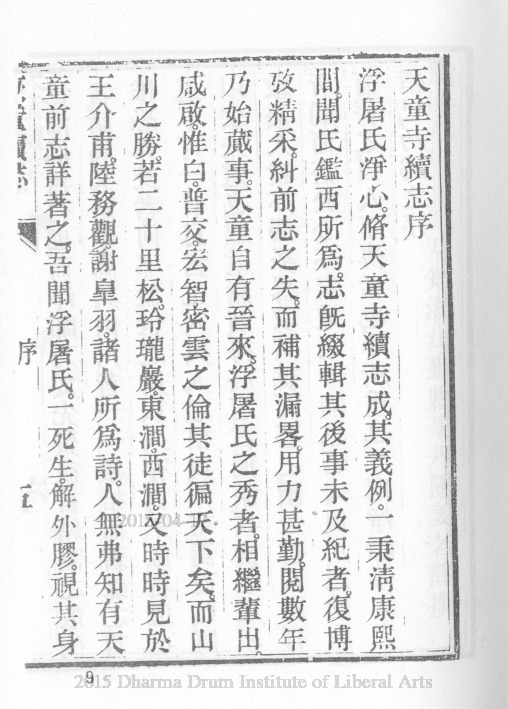 天童寺續志序
浮屠氏淨心脩天童寺續志成其義例一秉淸康熙
間聞氏鑑西所爲志旣綴輯其後事未及紀者復博
攷精采糾前志之失而補其漏畧用力甚勤閱數年
乃始蕆事天童自有晉來浮屠氏之秀者相繼輩出
咸啟惟白普交宏智密雲之倫其徒徧天下矣而山
川之勝若二十里松玲瓏巖東澗西澗又時時見於
王介甫陸務觀謝皐羽諸人所爲詩人無弗知有天
童前志詳著之吾聞浮屠氏一死生解外膠視其身
天童續志
序
五
9
2015 Dharma Drum Institute of Liberal Arts